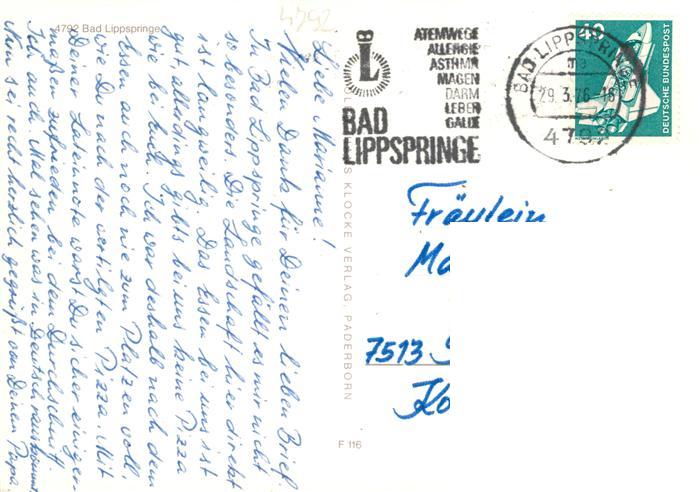 4792 Bad Lippspringe
4792
Liebe Marianne!
Vielen Dank für Deinen lieben Brief.
In Bad Lippspringe gefällt es mir nicht
so besonders. Die Landschaft hier direkt
ist langweilig. Das Essen bei uns ist
gut, allerdings gibts bei uns keine Pizza
wie bei Euch. Ich war deshalb nach dem
Essen auch noch nie zum Platzen voll,
wie Du nach der vertilgten Pizza. Mit
Deiner Lateinnote warst Du sicher einiger-
maßen zufrieden bei dem Durchschnitt.
Ich auch. Mal sehen was in Deutsch rauskommt.
Nun sei recht herzlich gegrüßt von Deinem Papa.
KLOCKE VERLAG, PADERBORN
F 116
B
L
ATEMWEGE
ALLERGIE
ASTHMA
MAGEN
DARM
LEBER
GALLE
BAD
LIPPSPRINGE
BAD LIPPSPRINGE
ma
29.3.76-16
4792
40
DEUTSCHE BUNDESPOST
Fräulein
Ma
7513
Ko